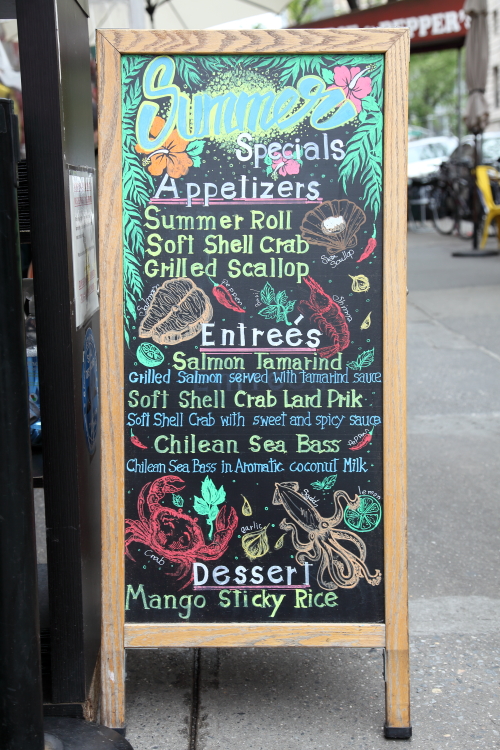 PEPPER'S
Summer
Specials
Appetizers
Summer Roll
Soft Shell Crab
Grilled Scallop
Sea Scallop
Salmon
Pepper
Shrimp
Entreés
Salmon Tamarind
Grilled Salmon served with tamarind sauce
Soft Shell Crab Lard Prik
Soft Shell Crab with sweet and spicy sauce
Chilean Sea Bass
Chilean Sea Bass in Aromatic coconut Milk
Crab
garlic
Squid
Lemon
Dessert
Mango Sticky Rice